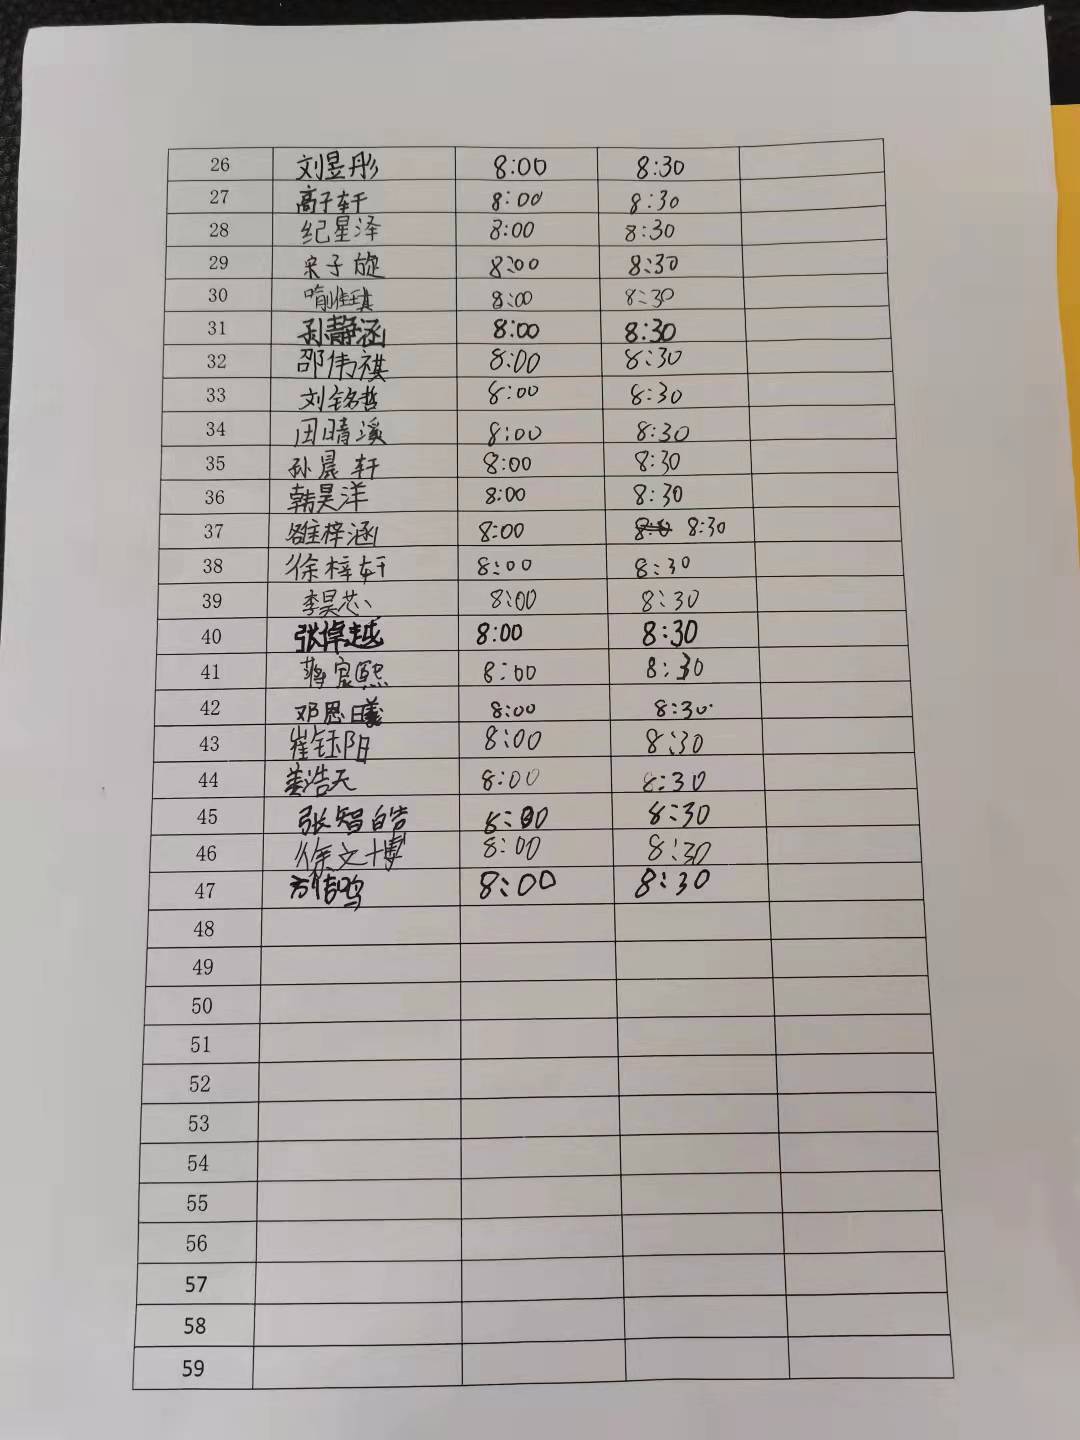 26 刘昱彤 8:00 8:30
27 高子轩 8:00 8:30
28 纪星泽 8:00 8:30
29 宋子旋 8:00 8:30
30 8:00 8:30
31 孙静涵 8:00 8:30
32 邵伟祺 8:00 8:30
33 刘铭哲 8:00 8:30
34 田晴溪 8:00 8:30
35 孙晨轩 8:00 8:30
36 韩昊洋 8:00 8:30
37 雒梓涵 8:00 8:30
38 徐梓轩 8:00 8:30
39 李昊芯 8:00 8:30
40 张倬越 8:00 8:30
41 蒋宸熙 8:00 8:30
42 邓思曦 8:00 8:30
43 崔钰阳 8:00 8:30
44 姜浩天 8:00 8:30
45 张智皓 8:00 8:30
46 徐文博 8:00 8:30
47 8:00 8:30
48
49
50
51
52
53
54
55
56
57
58
59